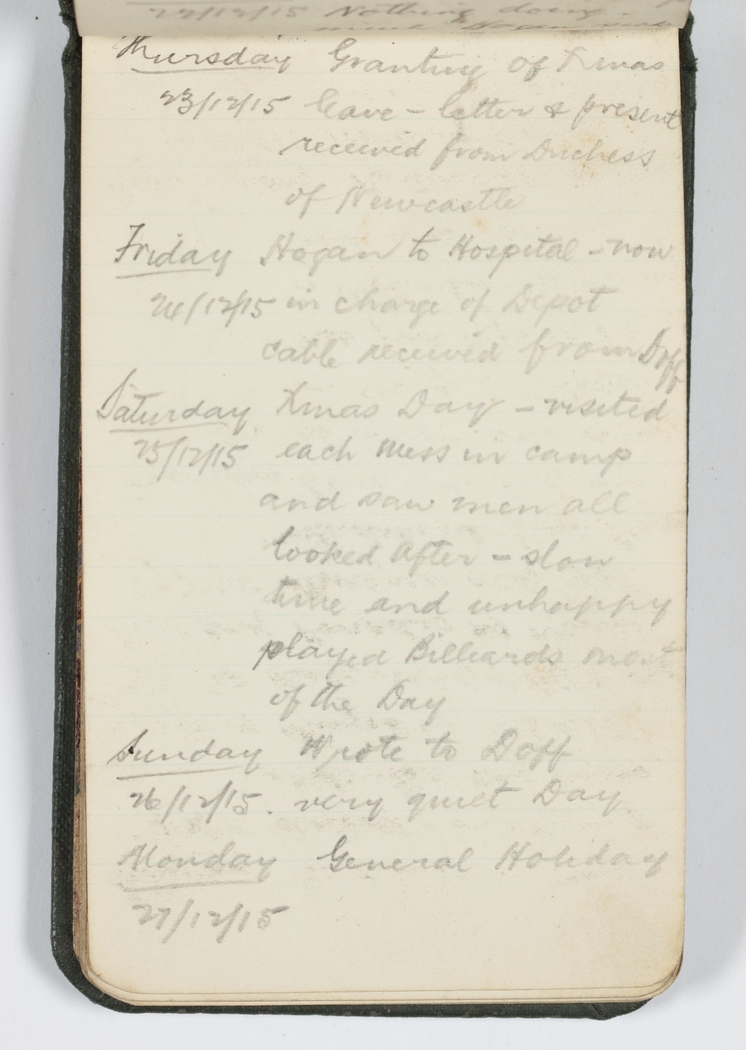 22/12/15 Nothing doing -
Thursday Granting of Xmas
23/12/15 leave - letter & present
received from Duchess
of Newcastle
Friday Hogan to Hospital - now
24/12/15 in charge of Depot
cable received from Doff
Saturday Xmas Day - visited
25/12/15 each mess in camp
and saw men all
looked after - slow
time and unhappy
played Billiards most
of the Day
Sunday Wrote to Doff
26/12/15. very quiet Day
Monday General Holiday
27/12/15